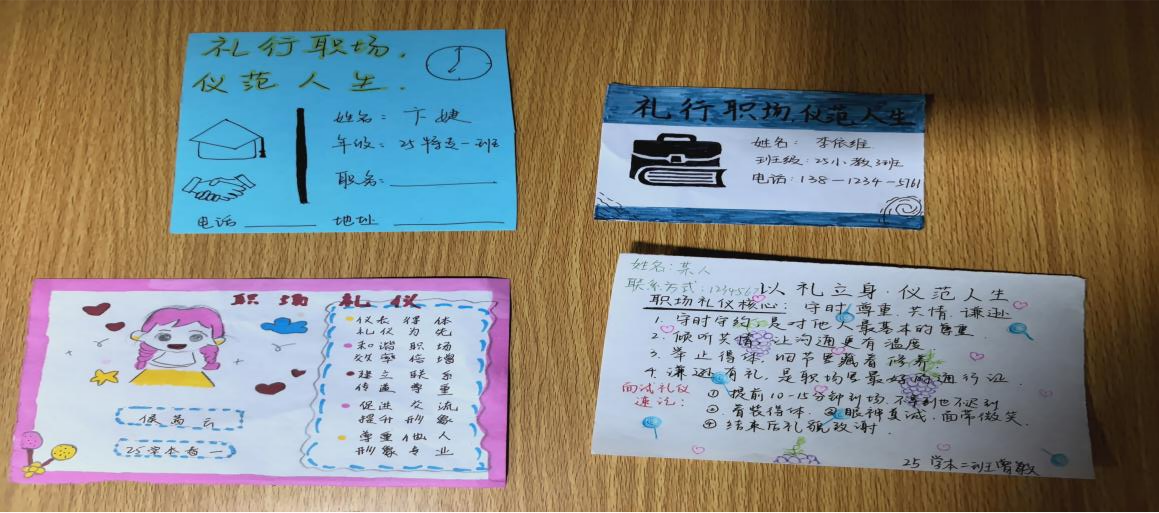 礼行职场，
仪范人生．
姓名：卞婕
年级：25特克一班
职务：
电话
地址
礼行职场，仪范人生
姓名：李依维
班级：25小教3班
电话：138-1234-5761
职场礼仪
仪表得体
礼仪为先
和谐职场
效率倍增
建立联系
传递尊重
促进交流
提升形象
尊重他人
形象专业
25学本香一
姓名：某人
联系方式：1234567
以礼立身·仪范人生
职场礼仪核心：守时、尊重、共情、谦逊
1. 守时守约，是对他人最基本的尊重
2. 倾听共情，让沟通更有温度
3. 举止得体，细节里藏着修养
4. 谦逊有礼，是职场里最好的通行证．
面试礼仪
速记：
① 提前10-15分钟到场，不早到也不迟到
②．着装得体．③眼神真诚．面带微笑．
④结束后礼貌致谢．
25 学本二班